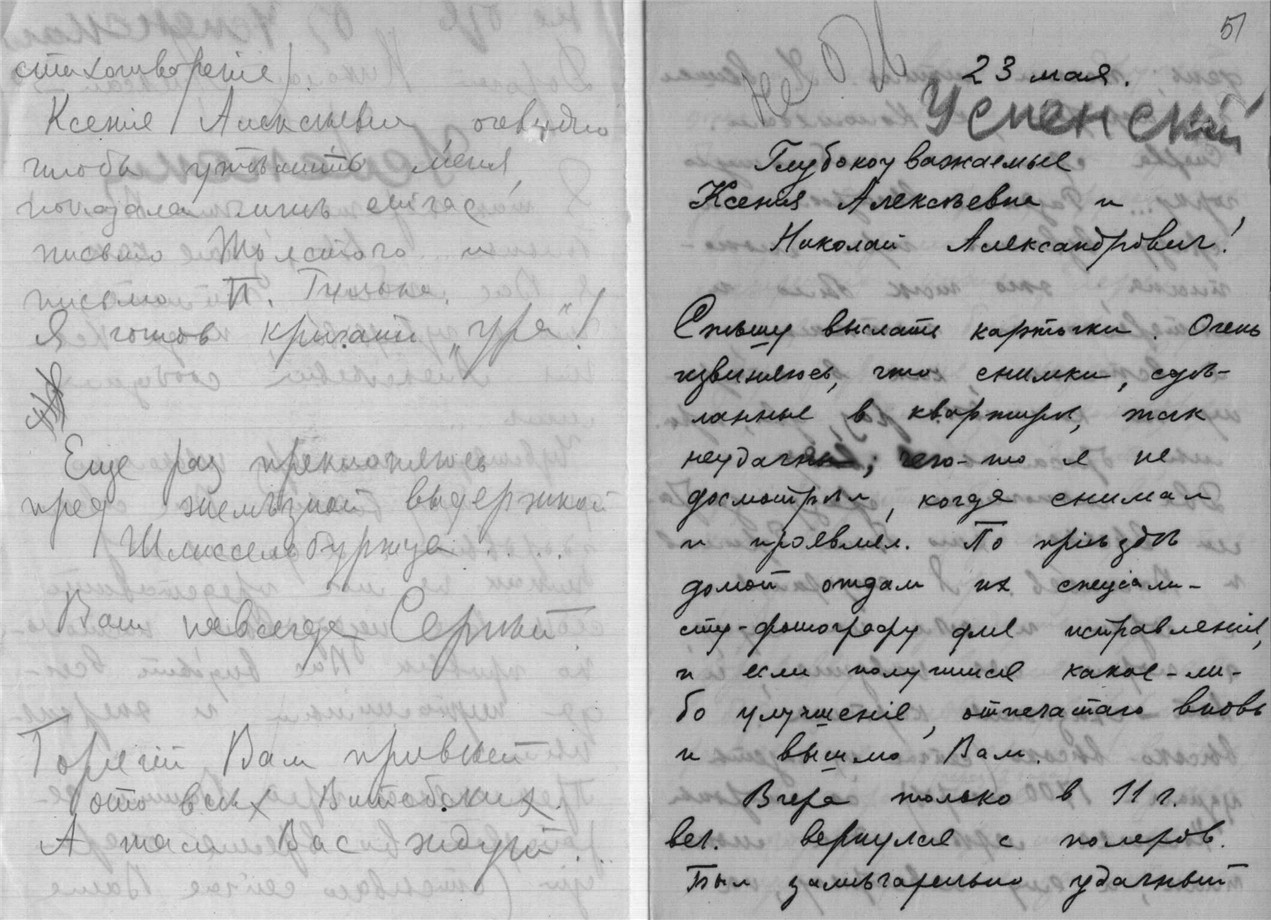 стихотвореніе).
Ксенія Алексѣевна очевидно
чтобы утѣшить меня,
показала лишь сейчас
письмо Толстого и
письмо П.
Я готов кричать „ура“!
Еще раз преклоняюсь
пред желѣзной выдержкой
Шлиссельбуржца . . .
Ваш навсегда Сергѣй
Горячій Вам привѣт
ото всѣх
А тася Вас ждут . .
51
не
23 мая.
Успенский
Глубокоуважаемые
Ксенія Алексѣевна и
Николай Александрович!
Спѣшу выслать карточки. Очень
извиняюсь, что снимки, сдѣ-
ланные в квартирѣ, так
неудачны; чего-то я не
досмотрѣл, когда снимал
и проявлял. По пріѣздѣ
домой отдам их спеціали-
сту-фотографу для исправленія,
и если получится какое-ли-
бо улучшеніе, отпечатаю вновь
и вышлю Вам.
Вчера только в 11 г.
веч. вернулся с полетов.
Был замѣчательно удачный